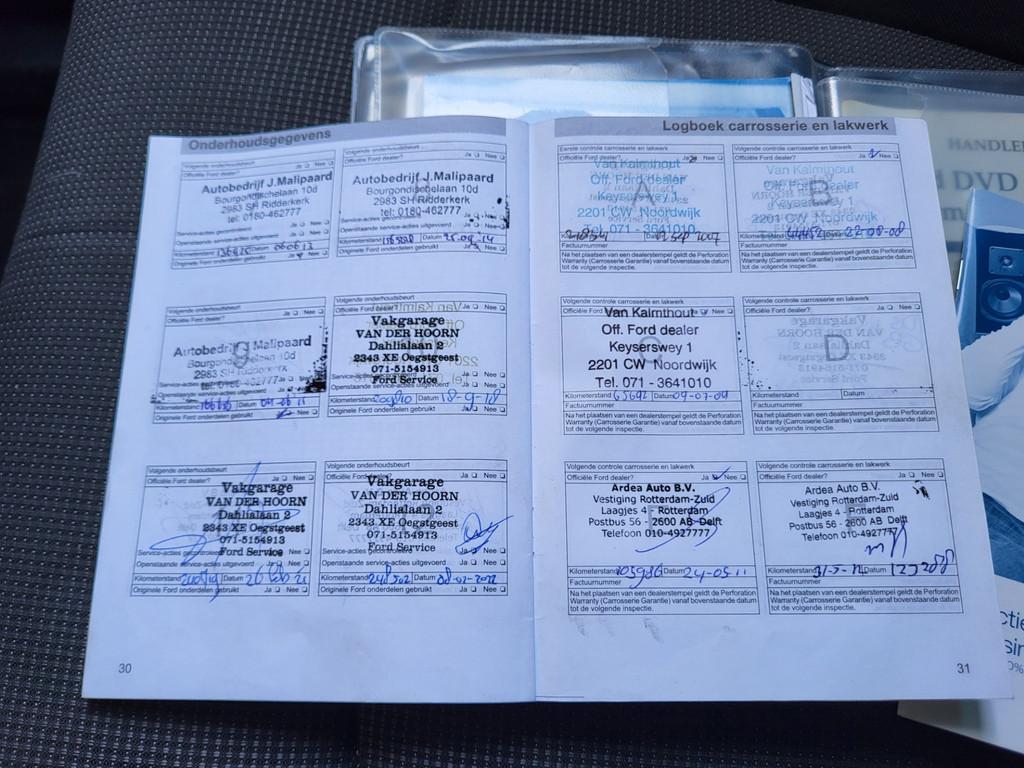 Onderhoudsgegevens
Volgende onderhoudsbeurt
Officiële Ford dealer? Ja Nee
Autobedrijf J.Malipaard
Bourgondischelaan 10d
2983 SH Ridderkerk
tel: 0180-462777
Service-acties gecontroleerd
Openstaande service-acties uitgevoerd Ja Nee
Kilometerstand Datum
Originele Ford onderdelen gebruikt Ja Nee
Volgende onderhoudsbeurt
Officiële Ford dealer? Ja Nee
Autobedrijf J.Malipaard
Bourgondischelaan 10d
2983 SH Ridderkerk
tel: 0180-462777
Service-acties
Openstaande service-acties uitgevoerd
Kilometerstand Datum
Originele Ford onderdelen gebruikt Ja Nee
Volgende onderhoudsbeurt
Officiële Ford dealer? Ja Nee
Autobedrijf J. Malipaard
10d
2983 SH Ridderkerk
Service-acties
Openstaande service-acties uitgevoerd Ja Nee
Kilometerstand Datum
Originele Ford onderdelen gebruikt Ja Nee
Volgende onderhoudsbeurt
Officiële Ford dealer? Ja Nee
Vakgarage
VAN DER HOORN
Dahlialaan 2
2343 XE Oegstgeest
071-5154913
Ford Service
Openstaande service-acties uitgevoerd Ja Nee
Kilometerstand Datum 18-9-18
Originele Ford onderdelen gebruikt Ja Nee
Volgende onderhoudsbeurt
Officiële Ford dealer? Ja Nee
Vakgarage
VAN DER HOORN
Dahlialaan 2
2343 XE Oegstgeest
071-5154913
Ford Service
Service-acties gecontroleerd Nee
Openstaande service-acties uitgevoerd Ja Nee
Kilometerstand Datum
Originele Ford onderdelen gebruikt Ja Nee
Volgende onderhoudsbeurt
Officiële Ford dealer? Ja Nee
Vakgarage
VAN DER HOORN
Dahlialaan 2
2343 XE Oegstgeest
071-5154913
Ford Service
Service-acties gecontroleerd Ja Nee
Openstaande service-acties uitgevoerd Ja Nee
Kilometerstand Datum 08-02-2022
Originele Ford onderdelen gebruikt Ja Nee
30
Logboek carrosserie en lakwerk
Eerste controle carrosserie en lakwerk
Officiële Ford dealer? Ja Nee
Van Kalmthout
Off. Ford dealer
Keyserswey 1
2201 CW Noordwijk
Tel. 071 - 3641010
A
Factuurnummer
Na het plaatsen van een dealerstempel geldt de Perforation
Warranty (Carrosserie Garantie) vanaf bovenstaande datum
tot de volgende inspectie.
Volgende controle carrosserie en lakwerk
Officiële Ford dealer? Ja Nee
Van Kalmthout
Off. Ford dealer
Keyserswey 1
2201 CW Noordwijk
B
Kilometerstand 22-08-08
Factuurnummer
Na het plaatsen van een dealerstempel geldt de Perforation
Warranty (Carrosserie Garantie) vanaf bovenstaande datum
tot de volgende inspectie.
Volgende controle carrosserie en lakwerk
Officiële Ford dealer? Ja Nee
Van Kalmthout
Off. Ford dealer
Keyserswey 1
2201 CW Noordwijk
Tel. 071 - 3641010
Kilometerstand 65692 Datum 09-07-09
Factuurnummer
Na het plaatsen van een dealerstempel geldt de Perforation
Warranty (Carrosserie Garantie) vanaf bovenstaande datum
tot de volgende inspectie.
Volgende controle carrosserie en lakwerk
Officiële Ford dealer? Ja Nee
D
Kilometerstand Datum
Factuurnummer
Na het plaatsen van een dealerstempel geldt de Perforation
Warranty (Carrosserie Garantie) vanaf bovenstaande datum
tot de volgende inspectie.
Volgende controle carrosserie en lakwerk
Officiële Ford dealer? Ja Nee
Ardea Auto B.V.
Vestiging Rotterdam-Zuid
Laagjes 4 - Rotterdam
Postbus 56 - 2600 AB Delft
Telefoon 010-4927777
Kilometerstand 105986 Datum 24-05-11
Factuurnummer
Na het plaatsen van een dealerstempel geldt de Perforation
Warranty (Carrosserie Garantie) vanaf bovenstaande datum
tot de volgende inspectie.
Volgende controle carrosserie en lakwerk
Officiële Ford dealer? Ja Nee
Ardea Auto B.V.
Vestiging Rotterdam-Zuid
Laagjes 4 - Rotterdam
Postbus 56 - 2600 AB Delft
Telefoon 010-4927777
Kilometerstand 31-5-12 Datum
Factuurnummer
Na het plaatsen van een dealerstempel geldt de Perforation
Warranty (Carrosserie Garantie) vanaf bovenstaande datum
tot de volgende inspectie.
31
DVD